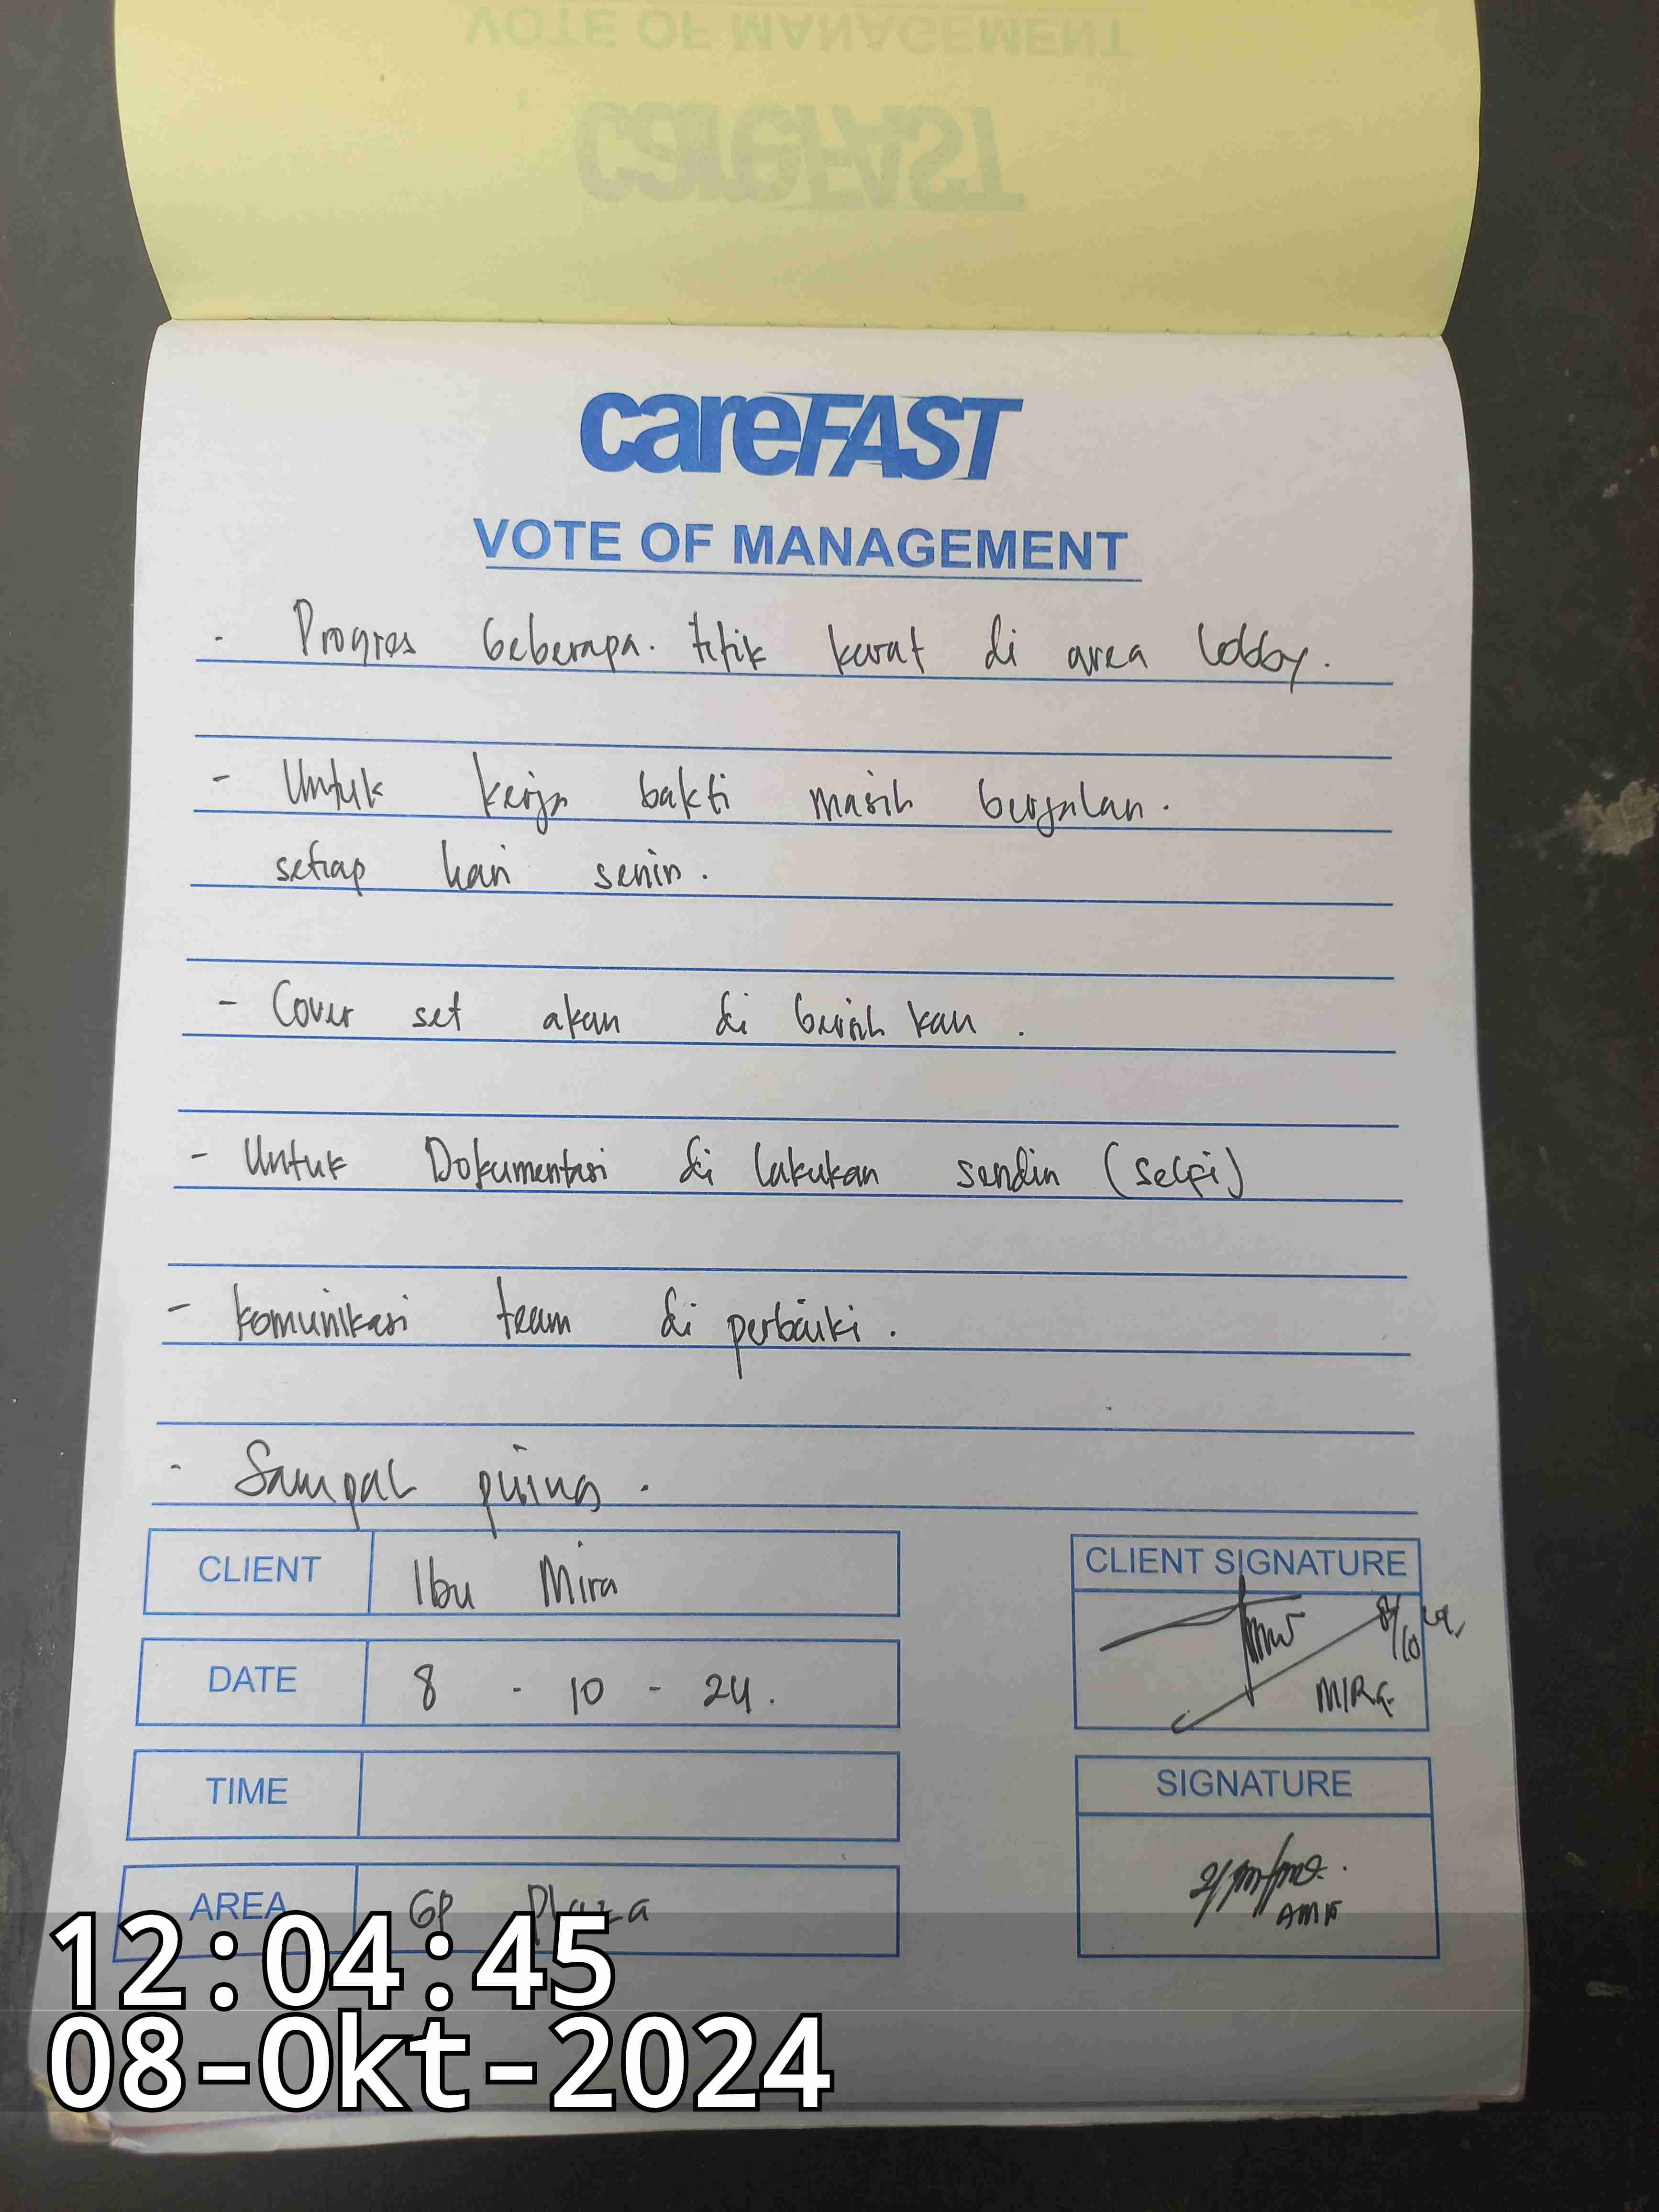 VOTE OF MANAGEMENT
careFAST
careFAST
VOTE OF MANAGEMENT
- Progres beberapa. titik karat di area lobby.
- Untuk kerja bakti masih berjalan.
setiap hari senin.
- Cover set akan di bersih kan.
- Untuk Dokumentasi di lakukan sendiri (selfi)
- komunikasi team di perbaiki.
- Sampah puing.
CLIENT Ibu Mira
DATE 8 - 10 - 24.
TIME
AREA GP Plaza
CLIENT SIGNATURE
8/10 24,
MIRA
SIGNATURE
12:04:45
08-Okt-2024